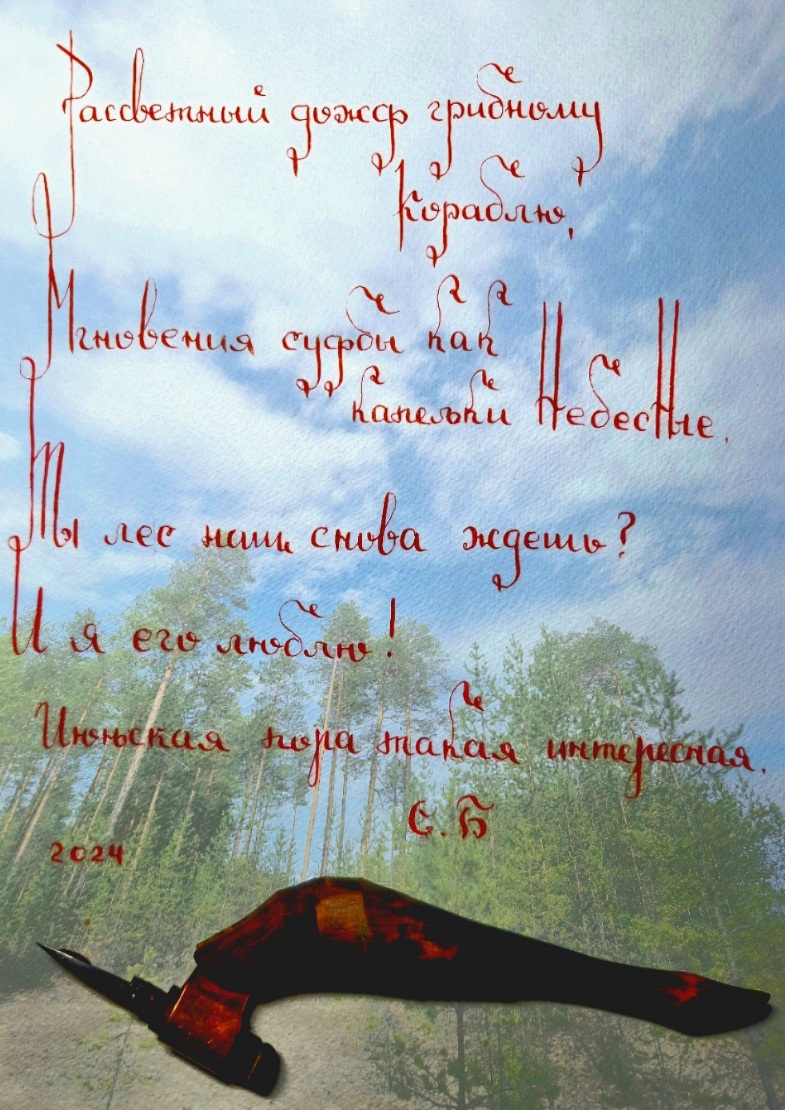 Рассветный дождь грибному
кораблю,
Мгновения судьбы как
капельки НебесНые.
Ты лес наш снова ждешь?
И я его люблю!
Июньская пора такая интересная.
С. Б
2024